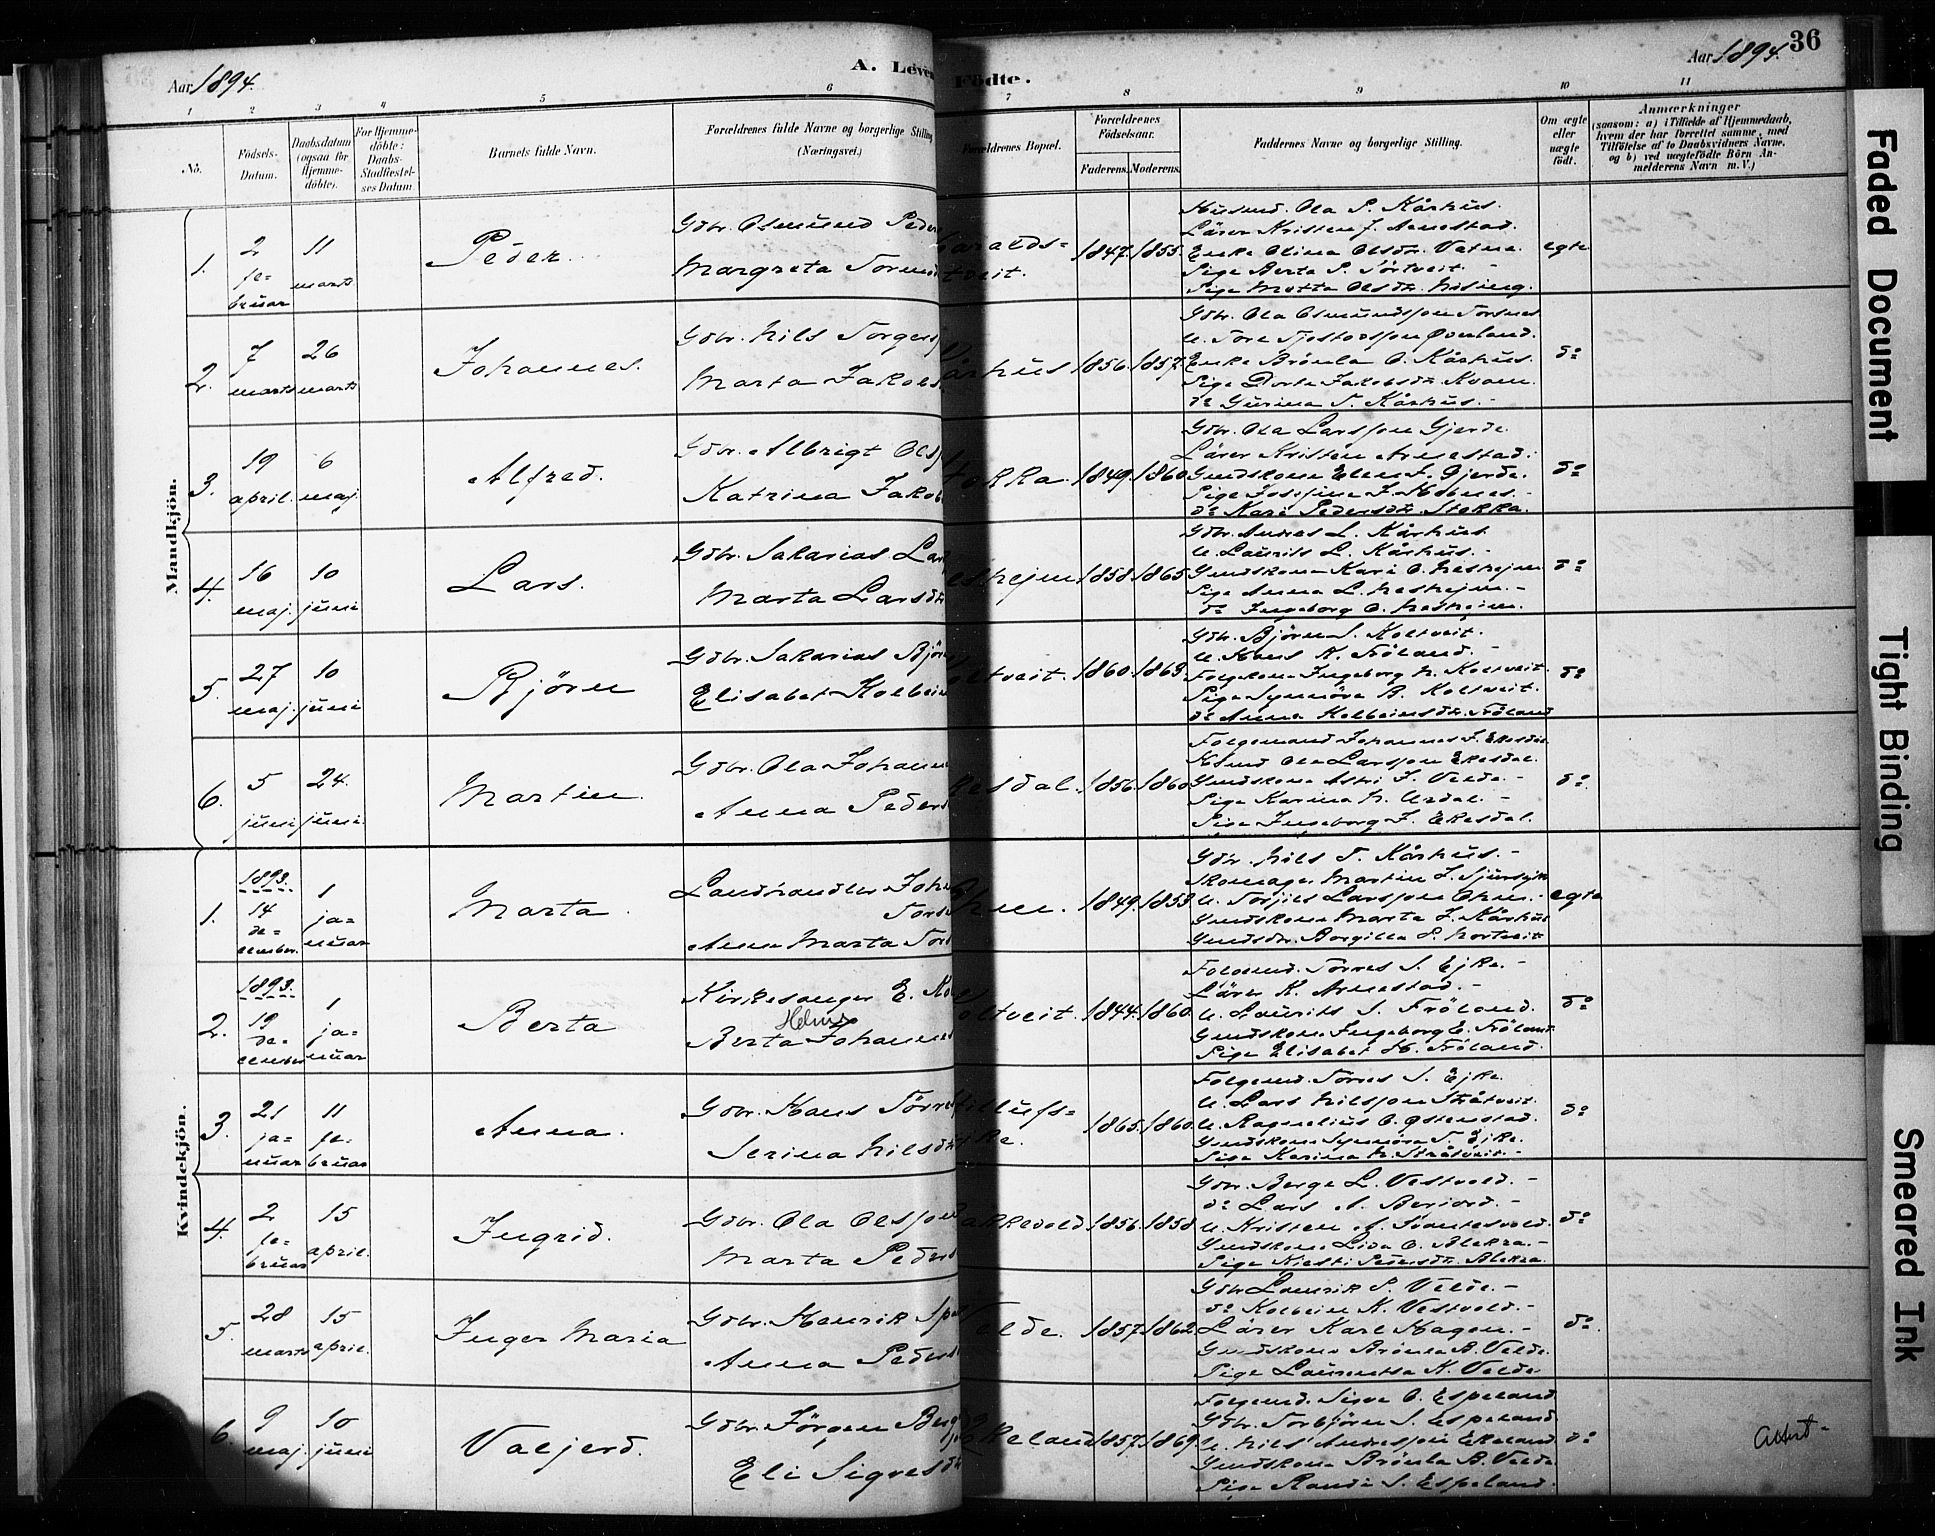 36
Aar 1894.
A. Leven
Födte.
Aar 1894.
1 2 3 4 5 6 7 8 9 10 11
No.
Födsels-
Datum.
Daabsdatum
(ogsaa for
Hjemme-
döbte).
For Hjemme-
döbte:
Daabs-
Stadfæstel-
ses Datum.
Barnets fulde Navn.
Forældrenes fulde Navne og borgerlige Stilling
(Næringsvei.)
Forældrenes Bopæl.
Forældrenes
Födselsaar.
Faderens. Moderens.
Faddernes Navne og borgerlige Stilling.
Om ægte
eller
uægte
födt.
Anmærkninger
(saasom: a) i Tilfælde af Hjemmedaab,
hvem der har forrettet samme, med
Tilföielse af to Daabsvidners Navne,
og b) ved uægtefödte Börn An-
melderens Navn m. V.)
Mandkjön.
1.
2
fe-
bruar
11
marts
Peder.
Gdbr. Osmund Peder
Margreta Torm
aralds-
tveit.
1847. 1855.
Husmd. Ola P. Kårhus.
Lärer Kristen J. Arnestad.
Enke Olina Olsdtr. Vatna.
Pige Berta P. Törtveit.
Pige Marta Olsdtr.
egte
2.
7
marts
26
marts
Johannes.
Gdbr. Nils Torgers
Marta Jakobs
århus
1856. 1857.
Gdbr. Ola Osmundsson Torsnes
U. Tore Tjostovsson Overland.
Enke Brönla O. Kårhus.
Pige Dorte Jakobsdtr. Kvam.
do Gurina T. Kårhus.
do
3.
19
april.
6
maj
Alfred.
Gdbr. Albrigt Ols
Katrina Jakob
okka.
1849. 1860.
Gdbr. Ola Larsson Gjerde.
Lärer Kristen Arnestad.
Gmdskone Elen J. Gjerde.
do Kari Pedersdtr. Stokka.
do
4.
16
maj.
10
juni
Lars.
Gdbr. Sakarias Lar
Marta Larsdtr
eshejm.
1858. 1865.
Gdbr. Andres L. Kårhus
U. Laurits L. Kårhus.
Gmdskone Kari O. Neshejm
Pige Anna L. Neshejm.
do Ingeborg O. Neshejm.
do
5.
27
maj.
10
juni
Björn
Gdbr. Sakarias Björ
Elisabet Kolbein
oltveit.
1860. 1863.
Gdbr. Björn S. Koltveit.
U. Hans K. Fröland.
Folgekone Ingeborg N. Koltveit.
Pige Synnöva B. Koltveit.
do Anna Kolbeinsdtr. Fröland
do
6.
5
juni
24.
juni.
Martin.
Gdbr. Ola Johann
Anna Peders
kesdal.
1856. 1860.
Folgemand Johannes J. Ekesdal
Husmd Ola Larsson Ekesdal.
Gmdskone Astri J. Velde.
Pige Karina N. Urdal.
Pige Ingeborg J. Ekesdal.
do.
Kvindekjön.
1.
1893.
14
de-
cember.
1
ja-
nuar
Marta.
Landhandler Joh
Tors
Anna Marta Tor
1849. 1853.
Gdbr. Nils T. Kårhus.
Skomager Martin J.
U. Torjeis Larsson
Gmdskone Marta J. Kårhus
Gmdsdtr. Borgilla S. Nortveit
egte
2.
1893.
19
de-
cember
1
ja-
nuar
Berta
Kirkesanger E. Kol
Helms
Berta Johann
oltveit.
1844. 1860.
Folgmd. Torres S. Ejke.
Lärer K. Arnestad.
U. Laurits S. Fröland.
Gmdskone Ingeborg E. Fröland
Pige Elisabet H. Fröland.
do
3.
21
ja-
nuar
11
fe-
bruar
Anna.
Gdbr. Hans Törre
Serina Nilsdtr
1865. 1860.
Folgemd. Torres S. Ejke.
U. Lars Nilsson Stråtveit.
U. Ragnelius O. Östenstad.
Gmdskone Synnöva T. Ejke.
Pige Karina N. Stråtveit.
do
4.
2
fe-
bruar
15
april.
Ingrid.
Gdbr. Ola Olsson
Marta Peders
akkevold
1856. 1858.
Gdbr. Berge L. Vestvold.
do Lars A. Berjord.
U. Kristen A. Svantesvold.
Gmdskone Lisa O. Blekra.
Pige Kjersti Pedersdtr. Blekra.
do
5.
28
marts
15
april.
Inger Maria
Gdbr. Henrik
Anna Peders
elde.
1857. 1862.
Gdbr Laurik S. Velde.
do Kolbein K. Vestvold.
Lärer Karl Hagen.
Gmdskone Brönla B. Velde.
Pige Laurentsa K. Velde
do.
6.
9
maj.
10
juni
Valjerd.
Gdbr. Jörgen Berg
Eli Sigvesdtr
Ekeland
1857. 1869.
Folgemd. Sigve O. Espeland
Gdbr. Torbjörn S. Espeland
U. Nils Andersson Ekeland
Gmdskone Brönla B. Velde
Pige Randi S. Espeland.
do
Attest
Faded Document
Tight Binding
Smeared Ink